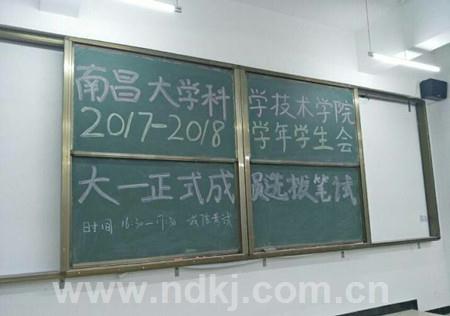 南昌大学科学技术学院
2017-2018学年学生会
大一正式成员选拔笔试
时间 16:30-17:30 诚信考试
www.ndkj.com.cn